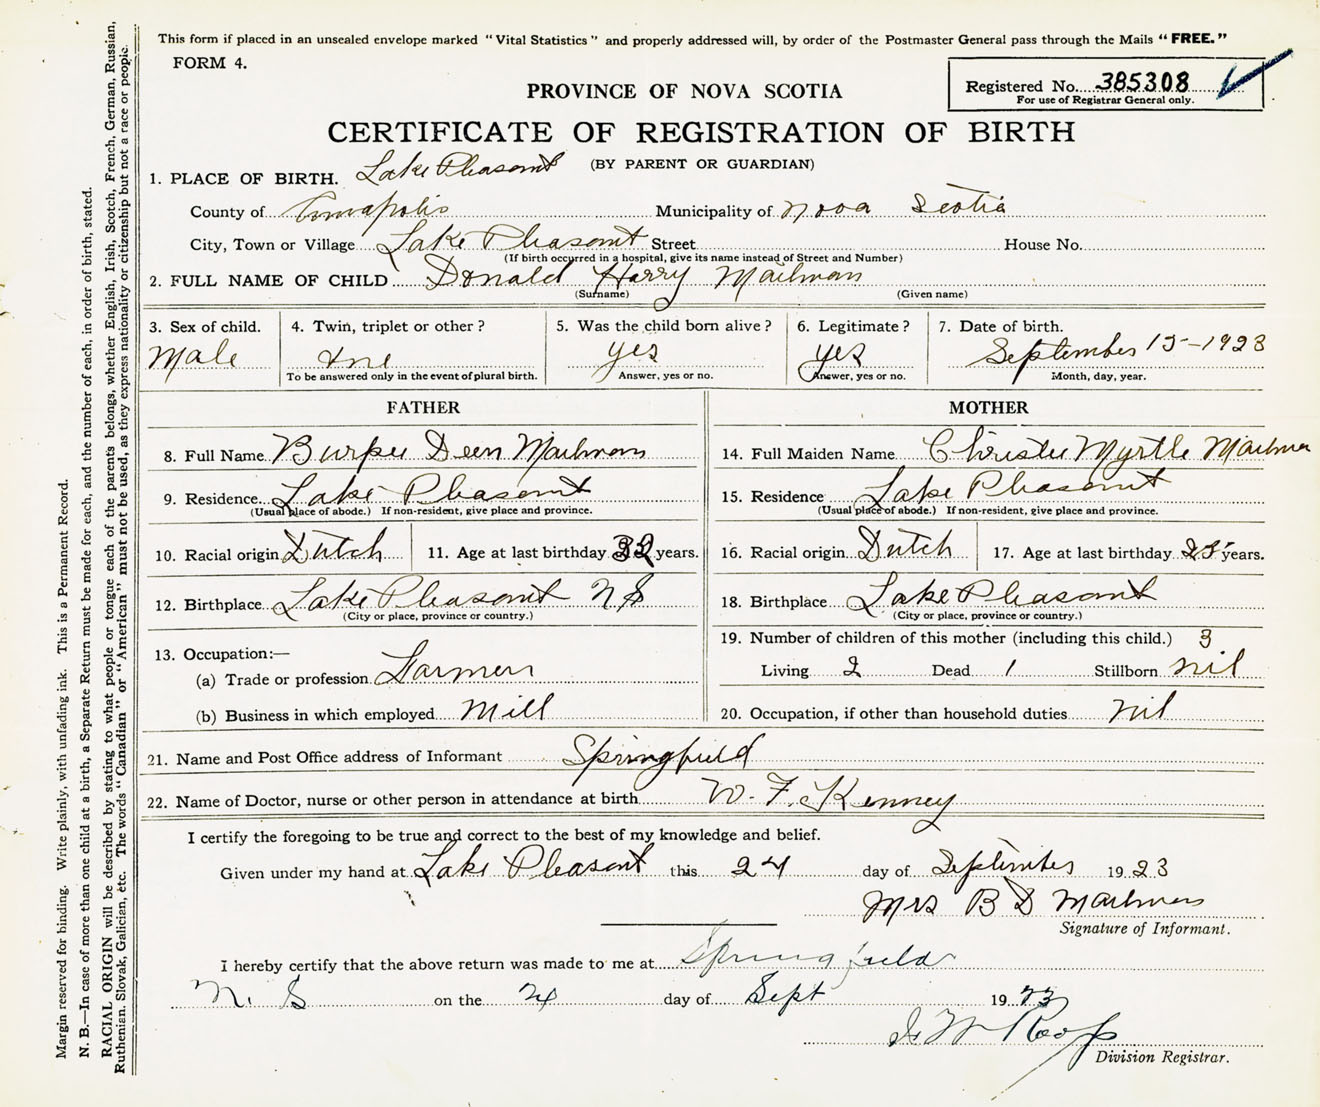 This form if placed in an unsealed envelope marked "Vital Statistics" and properly addressed will, by order of the Postmaster General pass through the Mails "FREE."
FORM 4.
Registered No. 385308
For use of Registrar General only.
PROVINCE OF NOVA SCOTIA
CERTIFICATE OF REGISTRATION OF BIRTH
(BY PARENT OR GUARDIAN)
1. PLACE OF BIRTH. Lake Pleasant
County of Annapolis Municipality of Nova Scotia
City, Town or Village Lake Pleasant Street House No.
(If birth occurred in a hospital, give its name instead of Street and Number)
2. FULL NAME OF CHILD Donald Harry Mailman
(Surname) (Given name)
3. Sex of child. 4. Twin, triplet or other? 5. Was the child born alive? 6. Legitimate? 7. Date of birth.
Male one yes yes September 15-1923
To be answered only in the event of plural birth. Answer, yes or no. Answer, yes or no. Month, day, year.
FATHER MOTHER
8. Full Name Burpee Deen Mailman 14. Full Maiden Name Christie Myrtle Mailman
9. Residence Lake Pleasant 15. Residence Lake Pleasant
(Usual place of abode.) If non-resident, give place and province. (Usual place of abode.) If non-resident, give place and province.
10. Racial origin Dutch 11. Age at last birthday 32 years. 16. Racial origin Dutch 17. Age at last birthday 25 years.
12. Birthplace Lake Pleasant N S 18. Birthplace Lake Pleasant
(City or place, province or country.) (City or place, province or country.)
13. Occupation:— 19. Number of children of this mother (including this child.) 3
(a) Trade or profession Farmer Living 2 Dead 1 Stillborn nil
(b) Business in which employed Mill 20. Occupation, if other than household duties nil
21. Name and Post Office address of Informant Springfield
22. Name of Doctor, nurse or other person in attendance at birth W. F. Kenney
I certify the foregoing to be true and correct to the best of my knowledge and belief.
Given under my hand at Lake Pleasant this 24 day of September 1923
Mrs B D Mailman
Signature of Informant.
I hereby certify that the above return was made to me at Springfield
N. S on the 24 day of Sept 1923
Roop
Division Registrar.
Margin reserved for binding. Write plainly, with unfading ink. This is a Permanent Record.
N. B.—In case of more than one child at a birth, a Separate Return must be made for each, and the number of each, in order of birth, stated.
RACIAL ORIGIN will be described by stating to what people or tongue each of the parents belongs, whether English, Irish, Scotch, French, German, Russian,
Ruthenian, Slovak, Galician, etc. The words "Canadian" or "American" must not be used, as they express nationality or citizenship but not a race or people.